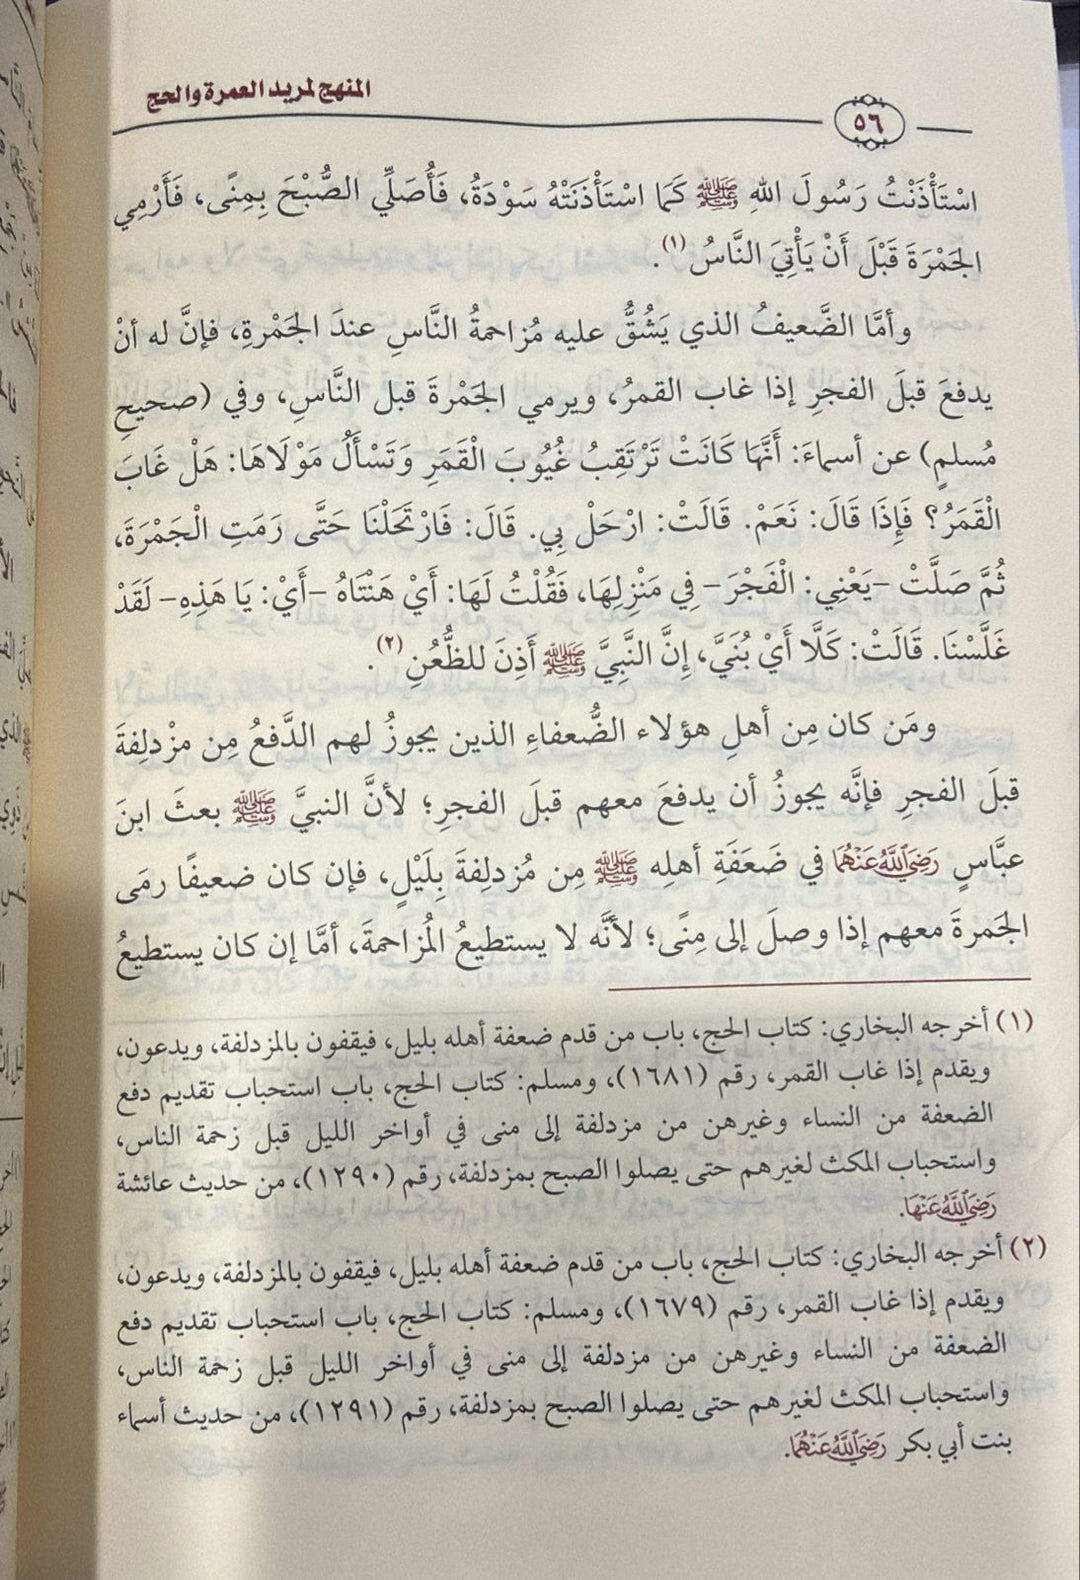 المنهج لمريد العمرة والحج
٥٦
اسْتَأْذَنْتُ رَسُولَ اللهِ ﷺ كَمَا اسْتَأْذَنَتْهُ سَوْدَةُ، فَأُصَلِّي الصُّبْحَ بِمِنًى، فَأَرْمِي
الجَمْرَةَ قَبْلَ أَنْ يَأْتِيَ النَّاسُ (١).
وأمَّا الضَّعيفُ الذي يَشُقُّ عليه مُزاحمةُ النَّاسِ عندَ الجَمْرةِ، فإنَّ له أنْ
يدفعَ قبلَ الفجرِ إذا غاب القمرُ، ويرمي الجَمْرةَ قبل النَّاسِ، وفي (صحيحِ
مُسلمٍ) عن أسماءَ: أَنَّهَا كَانَتْ تَرْتَقِبُ غُيُوبَ الْقَمَرِ وَتَسْأَلُ مَوْلَاهَا: هَلْ غَابَ
الْقَمَرُ؟ فَإِذَا قَالَ: نَعَمْ. قَالَتْ: ارْحَلْ بِي. قَالَ: فَارْتَحَلْنَا حَتَّى رَمَتِ الْجَمْرَةَ،
ثُمَّ صَلَّتْ -يَعْنِي: الْفَجْرَ- فِي مَنْزِلِهَا، فَقُلْتُ لَهَا: أَيْ هَنْتَاهُ -أَيْ: يَا هَذِهِ- لَقَدْ
غَلَّسْنَا. قَالَتْ: كَلَّا أَيْ بُنَيَّ، إِنَّ النَّبِيَّ ﷺ أَذِنَ للظُّعُنِ (٢).
ومَن كان مِن أهلِ هؤلاء الضُّعفاءِ الذين يجوزُ لهم الدَّفعُ مِن مزْدلِفةَ
قبلَ الفجرِ فإنَّه يجوزُ أن يدفعَ معهم قبلَ الفجرِ؛ لأنَّ النبيَّ ﷺ بعثَ ابنَ
عبَّاسٍ رَضِيَ ٱللَّهُ عَنْهُمَا في ضَعَفَةِ أهلِه ﷺ مِن مُزدلِفةَ بِلَيْلٍ، فإن كان ضعيفًا رمَى
الجَمرةَ معهم إذا وصلَ إلى مِنًى؛ لأنَّه لا يستطيعُ المُزاحمةَ، أمَّا إن كان يستطيعُ
(١) أخرجه البخاري: كتاب الحج، باب من قدم ضعفة أهله بليل، فيقفون بالمزدلفة، ويدعون،
ويقدم إذا غاب القمر، رقم (١٦٨١)، ومسلم: كتاب الحج، باب استحباب تقديم دفع
الضعفة من النساء وغيرهن من مزدلفة إلى منى في أواخر الليل قبل زحمة الناس،
واستحباب المكث لغيرهم حتى يصلوا الصبح بمزدلفة، رقم (١٢٩٠)، من حديث عائشة
رَضِيَ ٱللَّهُ عَنْهَا.
(٢) أخرجه البخاري: كتاب الحج، باب من قدم ضعفة أهله بليل، فيقفون بالمزدلفة، ويدعون،
ويقدم إذا غاب القمر، رقم (١٦٧٩)، ومسلم: كتاب الحج، باب استحباب تقديم دفع
الضعفة من النساء وغيرهن من مزدلفة إلى منى في أواخر الليل قبل زحمة الناس،
واستحباب المكث لغيرهم حتى يصلوا الصبح بمزدلفة، رقم (١٢٩١)، من حديث أسماء
بنت أبي بكر رَضِيَ ٱللَّهُ عَنْهُمَا.